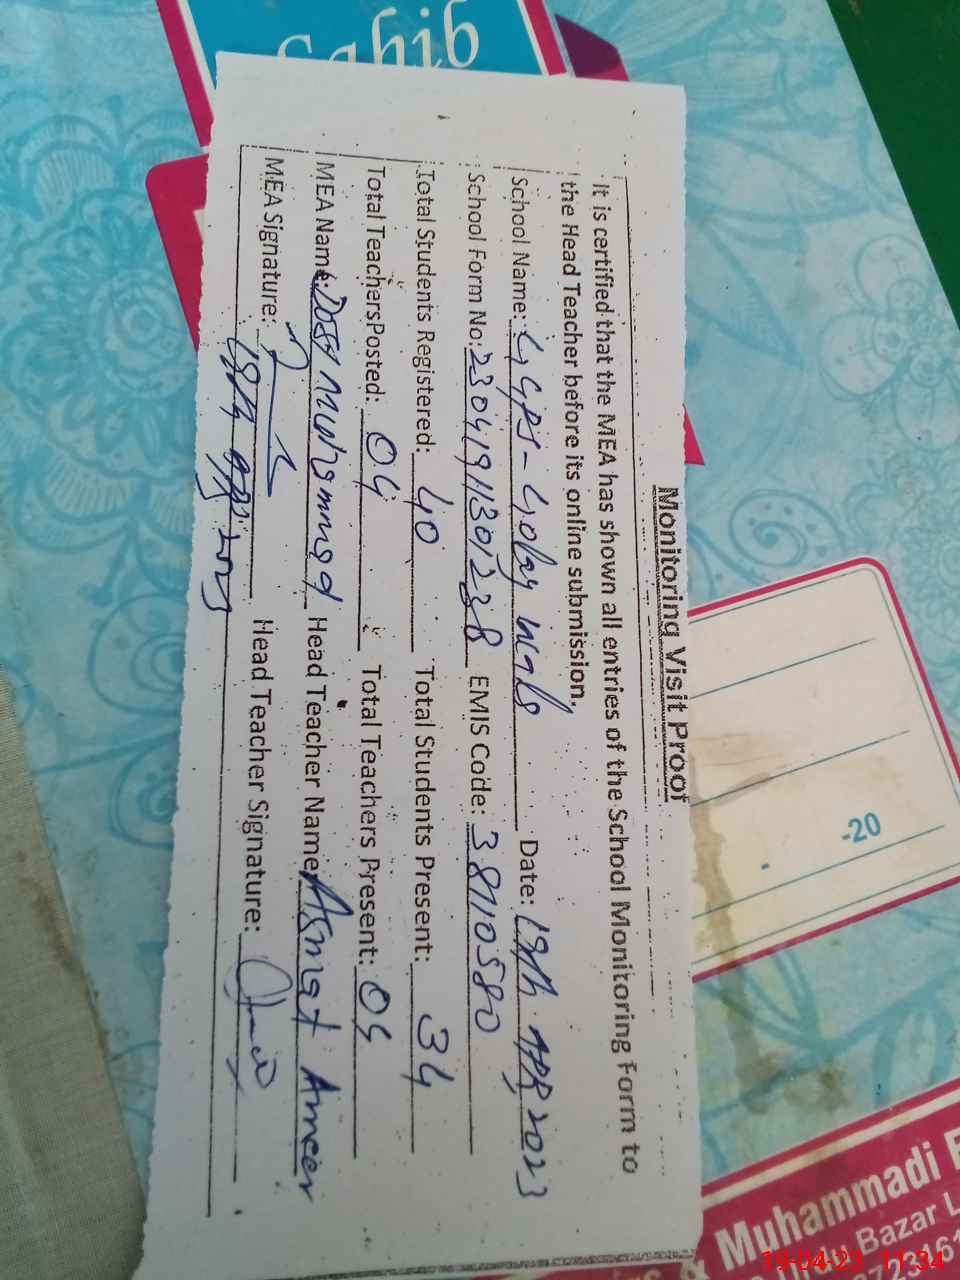 Sahib
Monitoring Visit Proof
It is certified that the MEA has shown all entries of the School Monitoring Form to
the Head Teacher before its online submission.
School Name: GGPS- Golay wala Date: 19th APR 2023
School Form No: 23041911301238 EMIS Code: 38710580
Total Students Registered: 40 Total Students Present: 34
Total Teachers Posted: 04 Total Teachers Present: 04
MEA Name: Dost Muhammad Head Teacher Name: Asmat Ameer
MEA Signature: Head Teacher Signature:
19th apr 2023
-20
Muhammadi
Bazar
19-04-23 11:34